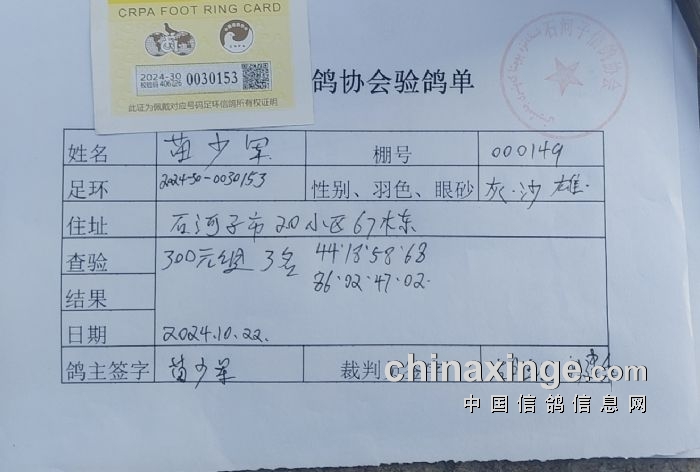 CRPA FOOT RING CARD
2024-30 0030153
校验码 406126
此证为佩戴对应号码足环信鸽所有权证明
鸽协会验鸽单
石河子信鸽协会
姓名 苗少军 棚号 000149
足环 2024-30-0030153 性别、羽色、眼砂 灰·沙 雄·
住址 石河子市20小区67栋
查验 300元组 3名 44·18·58·68
86·02·47·02·
结果
日期 2024.10.22.
鸽主签字 苗少军 裁判
chinaxinge.com
中国信鸽信息网